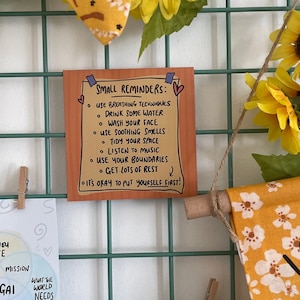 SMALL REMINDERS:
USE BREATHING TECHNIQUES
DRINK SOME WATER
WASH YOUR FACE
USE SOOTHING SMELLS
TIDY YOUR SPACE
LISTEN TO MUSIC
USE YOUR BOUNDARIES
GET LOTS OF REST
ITS OKAY TO PUT YOURSELF FIRST!
MISSION
WHAT THE
WORLD
NEEDS
GAI